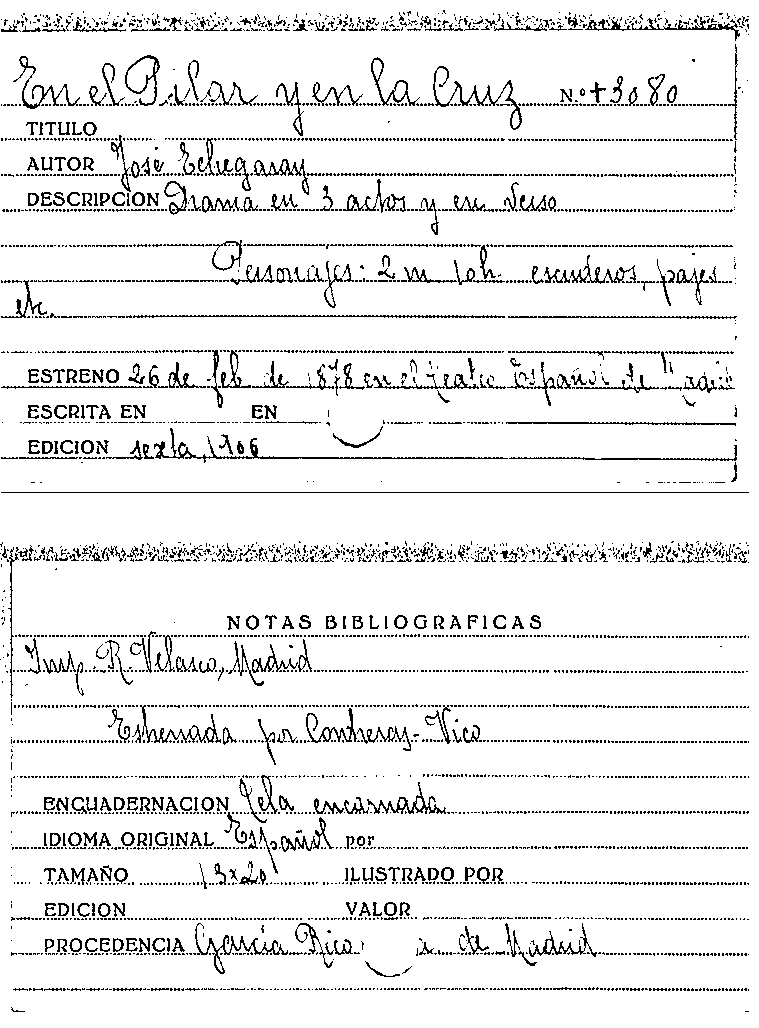 En el Pilar y en la Cruz N.º +3080
TITULO
AUTOR José Echegaray
DESCRIPCION Drama en 3 actos y en verso
Personajes: 2 m 10 h. escuderos, pajes
etc.
ESTRENO 26 de feb de 1878 en el teatro Español de Madrid
ESCRITA EN EN
EDICION sexta, 1906
NOTAS BIBLIOGRAFICAS
Imp. R. Velasco, Madrid
Estrenada por Contreras-Vico
ENCUADERNACION Tela encarnada
IDIOMA ORIGINAL Español por
TAMAÑO 13x20 ILUSTRADO POR
EDICION VALOR
PROCEDENCIA García Rico de Madrid